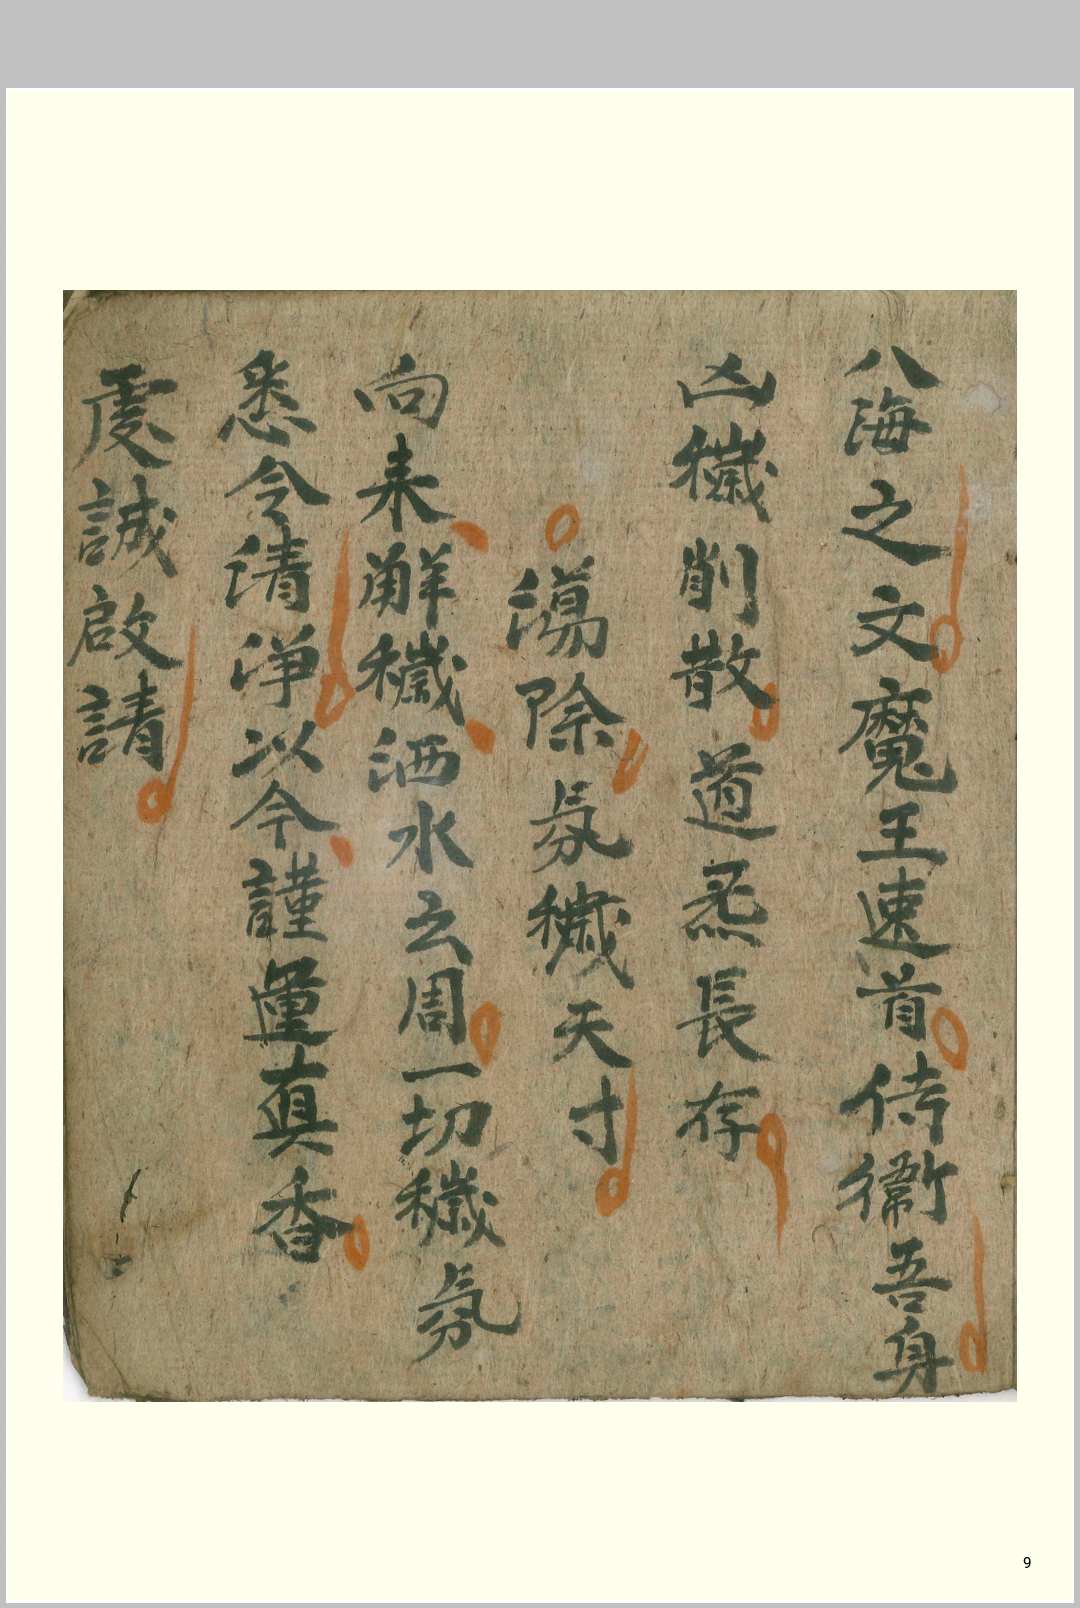 八海之文魔王速首侍衛吾身
凶穢削散道炁長存
蕩除氛穢天寸
向來解穢洒水云周一切穢氛
悉令清净以今謹運真香
虔誠啟請
9